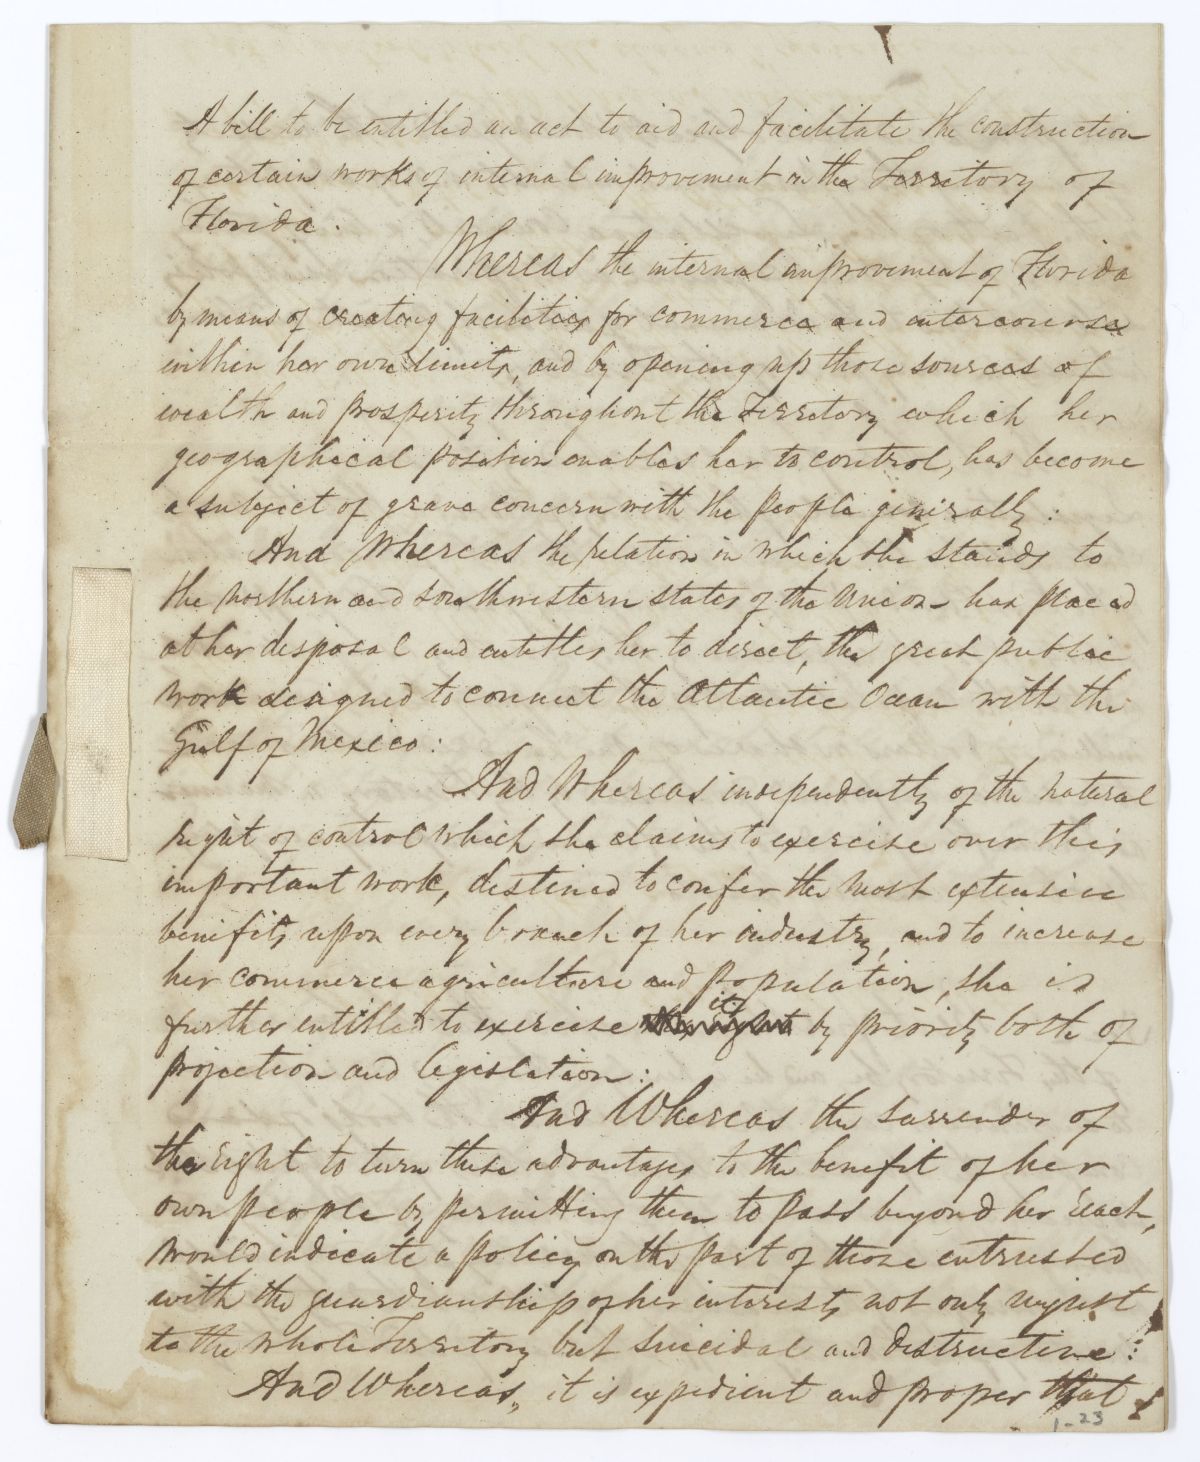 A bill to be entitled an act to aid and facilitate the construction
of certain works of internal improvement in the Territory of
Florida.
Whereas the internal improvement of Florida
by means of creating facilities for commerce and intercourse
within her own limits, and by opening up those sources of
wealth and prosperity throughout the Territory which her
geographical position enables her to control, has become
a subject of grave concern with the people generally:
And Whereas the relation in which she stands to
the northern and southwestern states of the Union has placed
at her disposal and entitles her to direct, the great public
work designed to connect the Atlantic Ocean with the
Gulf of Mexico:
And Whereas independently of the natural
right of control which she claims to exercise over this
important work, destined to confer the most extensive
benefits upon every branch of her industry, and to increase
her commerce agriculture and population, she is
further entitled to exercise the right it by priority both of
projection and legislation:
And Whereas the surrender of
the right to turn these advantages to the benefit of her
own people by permitting them to pass beyond her reach,
would indicate a policy on the part of those entrusted
with the guardianship of her interests not only unjust
to the whole Territory but suicidal and destructive:
And Whereas, it is expedient and proper that
1-23